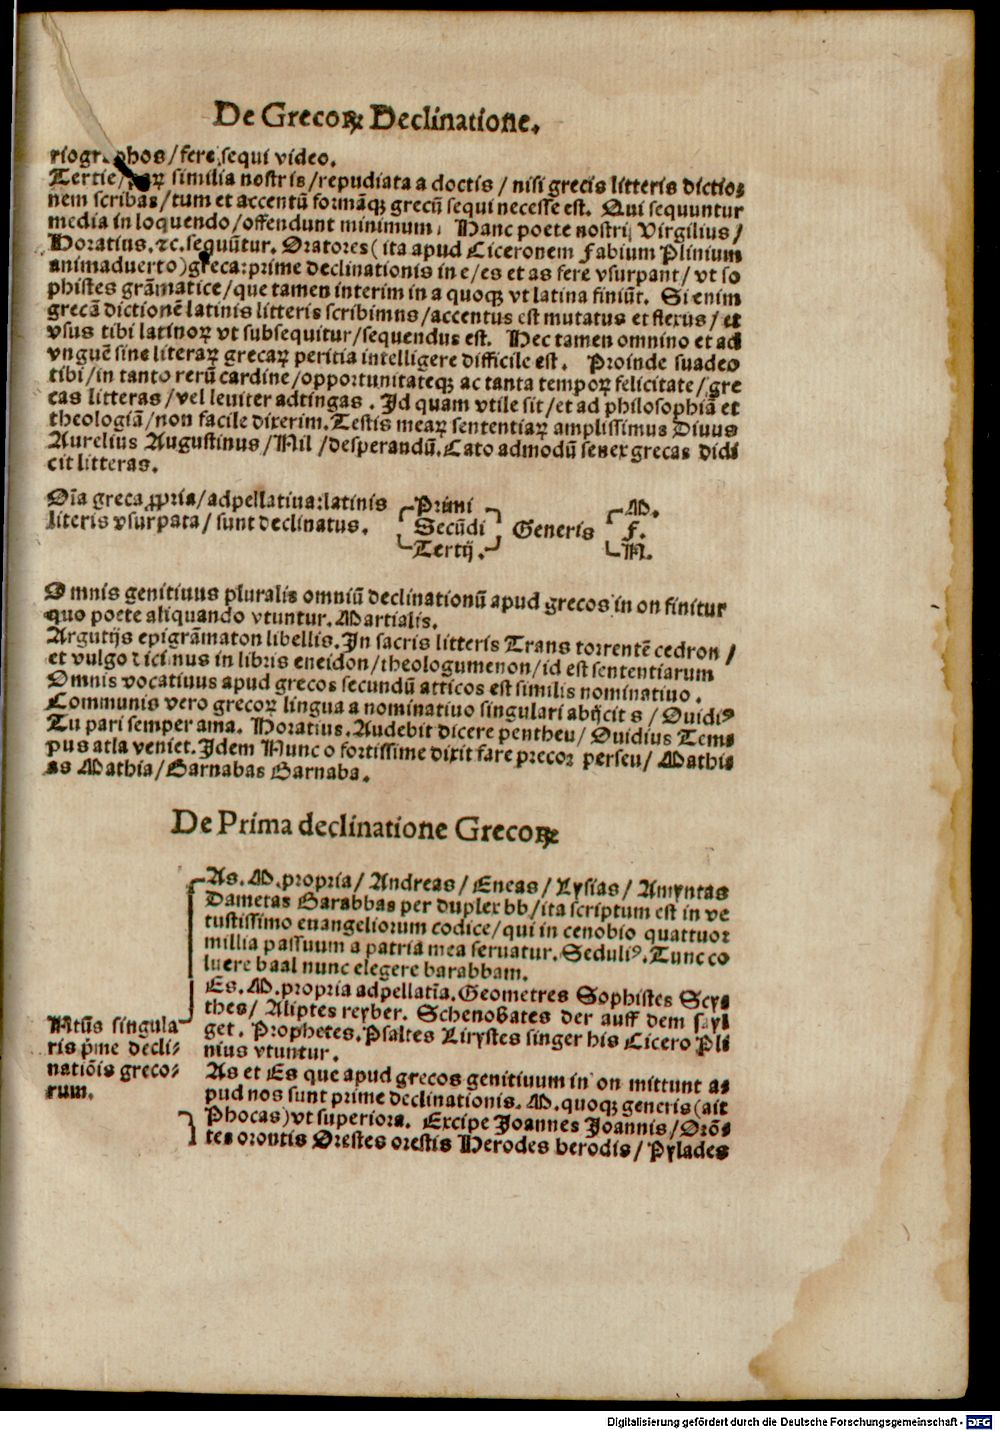 De Grecoꝝ Declinatione.
riographos/fere sequi video.
Tertie/ similia nostris/repudiata a doctis / nisi grecis litteris dictio⸗
nem scribas/tum et accentū formāqꝫ grecū sequi necesse est. Qui sequuntur
media in loquendo/offendunt minimum. Hanc poete nostrij Virgilius/
Horatius. ꝛc. sequūtur. Oratores (ita apud Ciceronem Fabium Plinium
animaduerto) grecar prime declinationis in e/es et as fere vsurpant/ vt so
phistes grāmatice/que tamen interim in a quoqꝫ vt latina finiūt. Si enim
grecā dictionē latinis litteris scribimus/accentus est mutatus et flexus/ et
vsus tibi latinoꝝ vt subsequitur/sequendus est. Hec tamen omnino et ad
vnguē sine literaꝝ grecaꝝ peritia intelligere difficile est. Proinde suadeo
tibi/in tanto rerū cardine/opportunitateqꝫ ac tanta tempoꝝ felicitate/gre
cas litteras/vel leuiter adtingas. Id quam vtile sit/et ad philosophiā et
theologiā/non facile dixerim. Testis meaꝝ sententiaꝝ amplissimus Diuus
Aurelius Augustinus/Nil/desperandū. Cato admodū senex grecas didi
cit litteras.
Oīa greca ꝓpria/adpellatiua:latinis Primi M.
literis vsurpata/sunt declinatus. Secūdi Generis F.
Tertij. N.
Omnis genitiuus pluralis omniū declinationū apud grecos in on finitur
quo poete aliquando vtuntur. Martialis.
Argutijs epigrāmaton libellis. In sacris litteris Trans torrentē cedron /
et vulgo dicimus in libris eneidon/theologumenon/id est sententiarum
Omnis vocatiuus apud grecos secundū atticos est similis nominatiuo.
Communis vero grecoꝝ lingua a nominatiuo singulari abijcit s / Ouidiꝰ
Tu pari semper ama. Horatius. Audebit dicere pentheu/ Ouidius Tem⸗
pus atla veniet. Idem Nunc o fortissime dixit fare precor perseu/ Mathi⸗
as Mathia/Barnabas Barnaba.
De Prima declinatione Grecoꝝ
As. M. propria/ Andreas/ Eneas/ Lysias/ Amyntas
Dametas Barabbas per duplex bb/ita scriptum est in ve
tustissimo euangeliorum codice/qui in cenobio quattuor
millia passuum a patria mea seruatur. Seduliꝰ. Tunc co
luere baal nunc elegere barabbam.
Es. M. propria adpellatīa. Geometres Sophistes Scy⸗
thes/ Aliptes reyber. Schenobates der auff dem sayl
get. Prophetes. Psaltes Liristes singer his Cicero Pli
nius vtuntur.
Ntūs singula
ris p̄me decli⸗
natiōis greco⸗
rum.
As et Es que apud grecos genitiuum in on mittunt a⸗
pud nos sunt prime declinationis. M. quoqꝫ generis (ait
Phocas) vt superiora. Excipe Joannes Joannis/Orō⸗
tes orontis Orestes orestis Herodes herodis/ Pylades
Digitalisierung gefördert durch die Deutsche Forschungsgemeinschaft - DFG